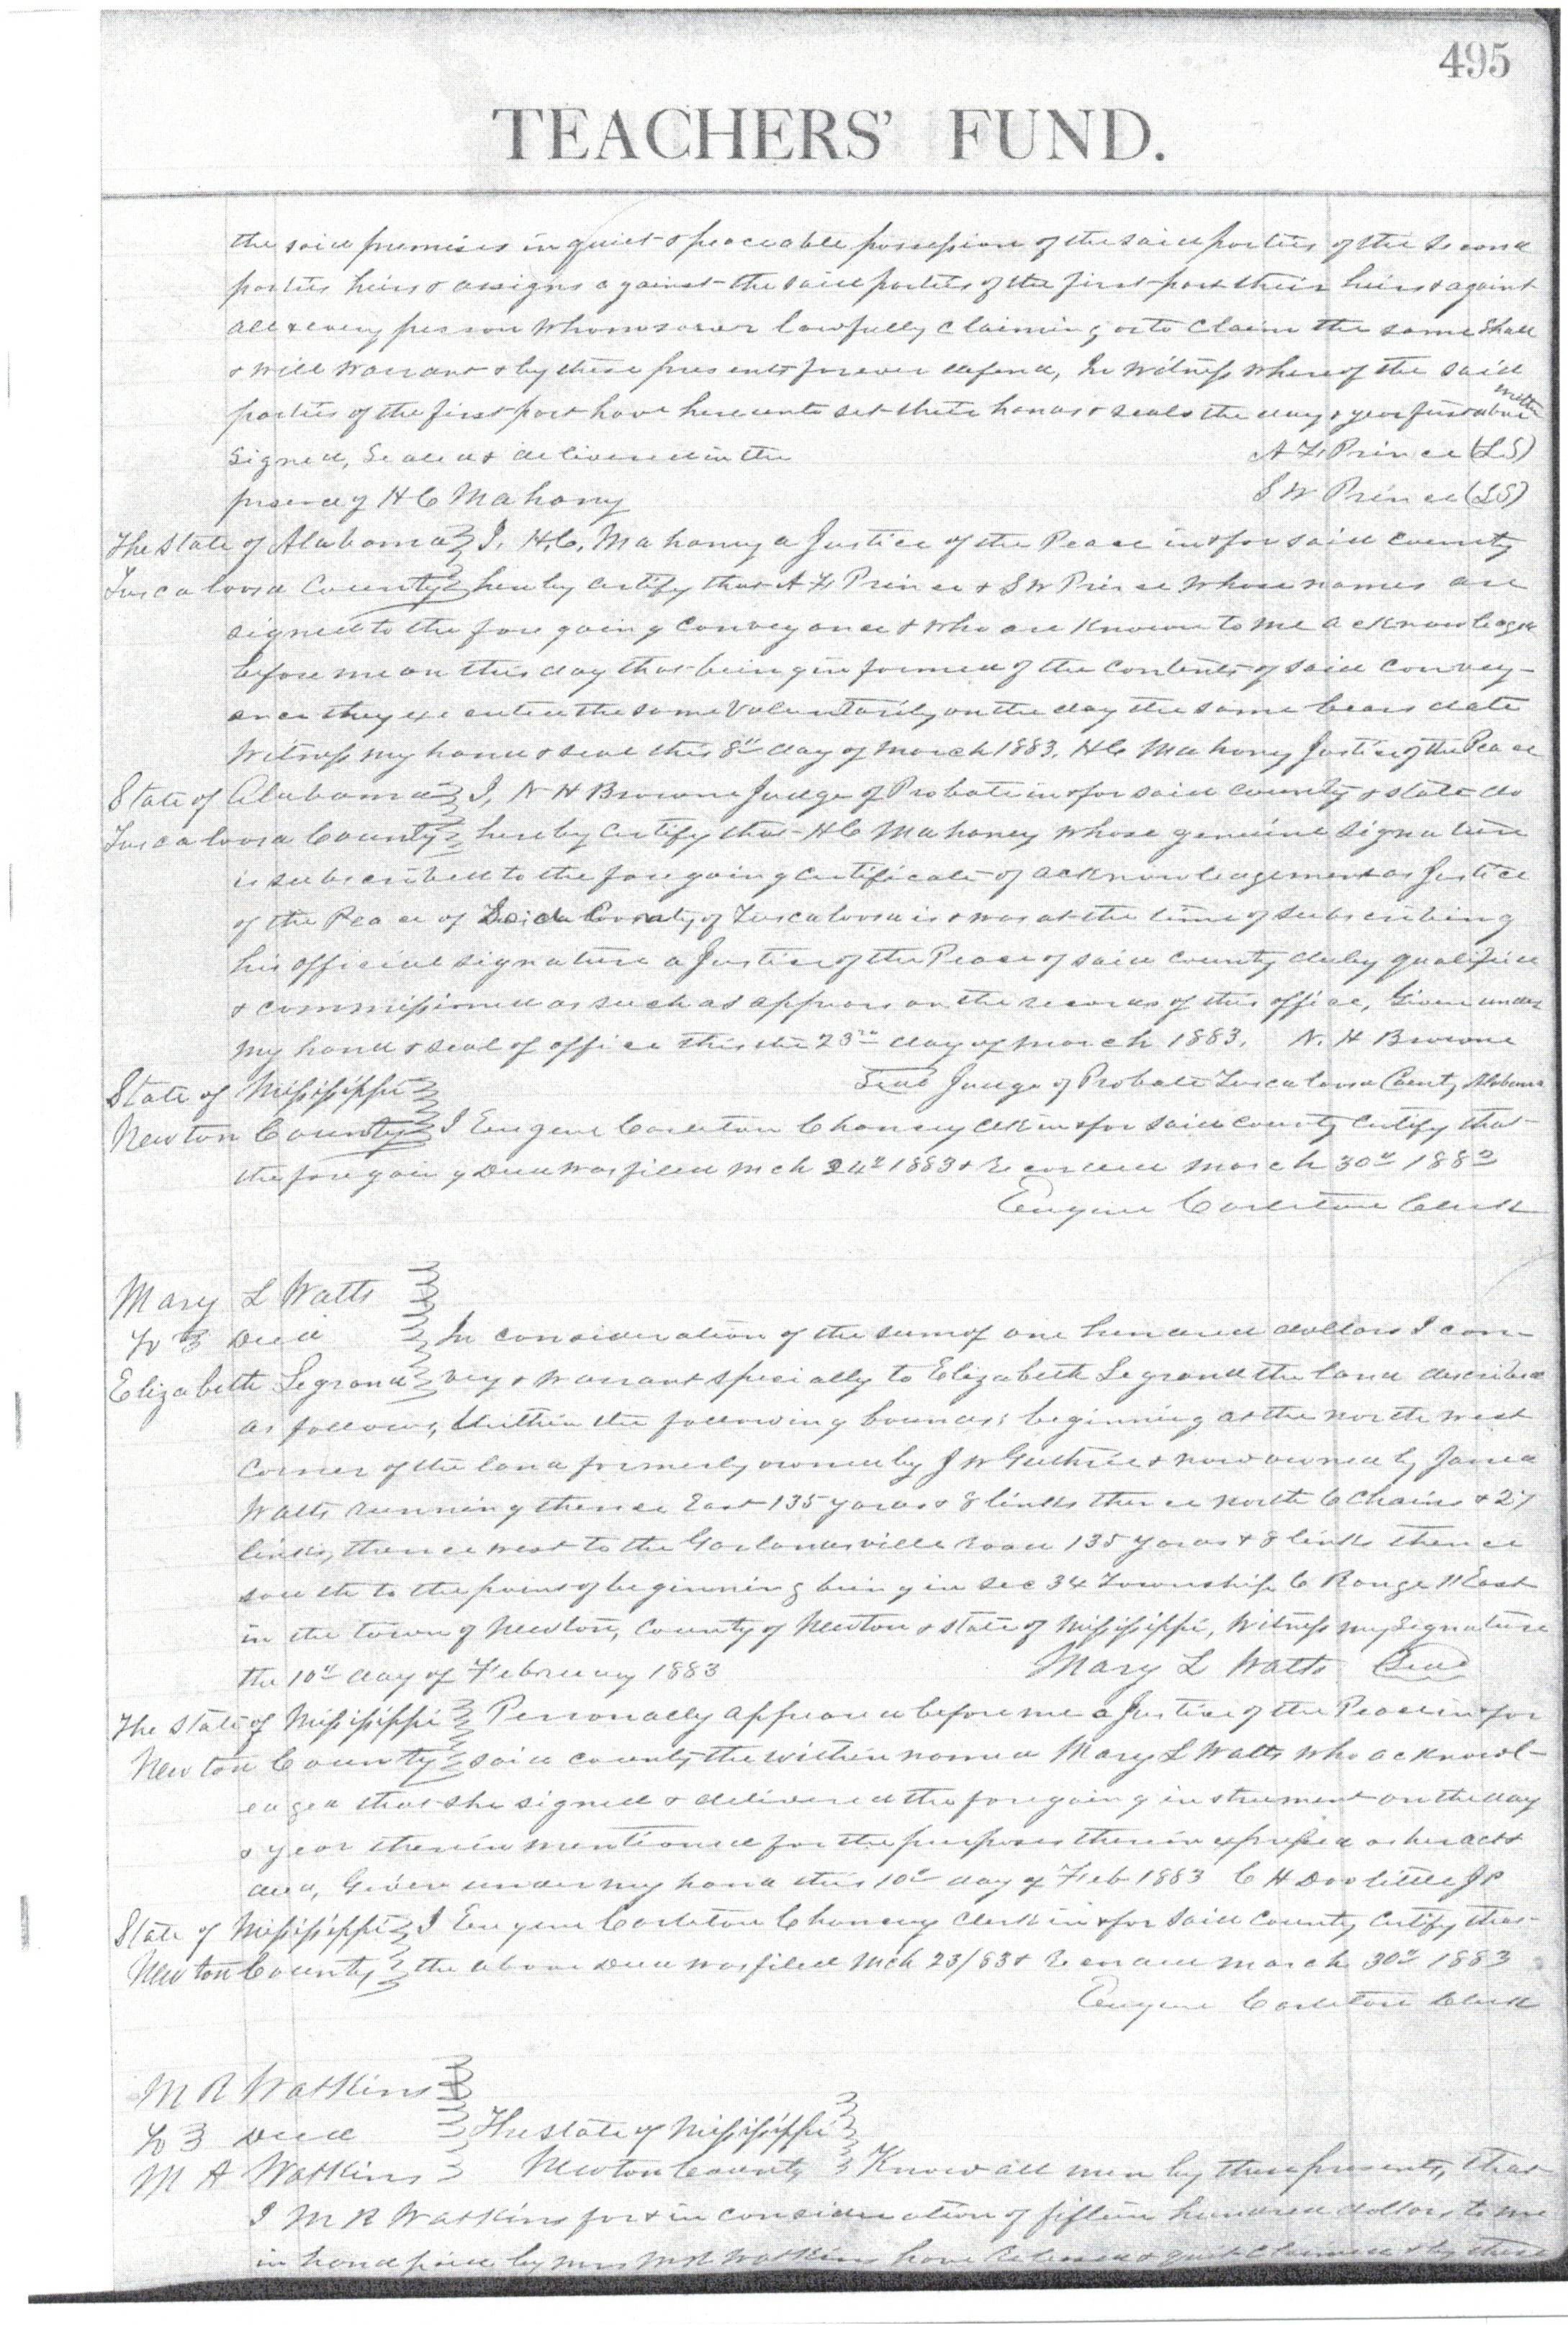 495
TEACHERS' FUND.
the said premises in quiet & peaceable possession of the said parties of the second
parties heirs & assigns against the said parties of the first part their heirs & against
all & every person whomsoever lawfully claiming or to claim the same shall
& will warrant & by these presents forever defend, In Witness whereof the said
parties of the first part have hereunto set their hands & seals the day & year first above written
Signed, Sealed & delivered in the A F Prince (LS)
presence of H C Mahony S W Prince (LS)
The State of Alabama I, H. C. Mahony a Justice of the Peace in & for said County
Tuscaloosa County hereby certify that A F Prince & S W Prince whose names are
signed to the foregoing conveyance & who are known to me acknowledge
before me on this day that being informed of the contents of said convey-
ance they executed the same voluntarily on the day the same bears date
Witness my hand & seal this 8th day of March 1883. H C Mahony Justice of the Peace
State of Alabama I, N H Browne Judge of Probate in & for said county & state do
Tuscaloosa County hereby certify that H C Mahoney whose genuine signature
is subscribed to the foregoing certificate of acknowledgement as Justice
of the Peace of Said County of Tuscaloosa is & was at the time of subscribing
his official signature a Justice of the Peace of said county duly qualified
& commissioned as such as appears on the records of this office, Given under
my hand & seal of office this the 23rd day of March 1883. N. H Browne
State of Mississippi Seal Judge of Probate Tuscaloosa County Alabama
Newton County I Eugene Carleton Chancery Clk in & for said county certify that
the foregoing Deed was filed Mch 24th 1883 & Recorded March 30th 1883
Eugene Carleton Clerk
Mary L Watts
To 3 Deed In consideration of the sum of one hundred dollars I con-
Elizabeth Legrand vey & warrant specially to Elizabeth Legrand the land described
as follows, Within the following bounds; beginning at the north west
corner of the land formerly owned by J W Guthrie & now owned by Jared
Watts running thence East 135 yards & 8 links thence north 6 Chains & 27
links, thence west to the Garlandsville road 135 yards & 8 links thence
south to the point of beginning being in Sec 34 Township 6 Range 11 East
in the town of Newton, County of Newton & State of Mississippi, Witness my signature
the 10th day of February 1883 Mary L Watts Seal
The State of Mississippi Personally appeared before me a Justice of the Peace in & for
Newton County said county the within named Mary L Watts who acknowl-
edged that she signed & delivered the foregoing instrument on the day
& year therein mentioned for the purposes therein expressed as her act &
deed, Given under my hand this 10th day of Feb 1883 C H Doolittle JP
State of Mississippi I Eugene Carleton Chancery Clerk in & for said County certify that
Newton County the above Deed was filed Mch 23/83 & Recorded March 30th 1883
Eugene Carleton Clerk
M R Watkins
To 3 Deed The State of Mississippi
M A Watkins Newton County Know all men by these presents, that
I M R Watkins for & in consideration of fifteen hundred dollars to me
in hand paid by Mrs M A Watkins have released & quit claimed & by these